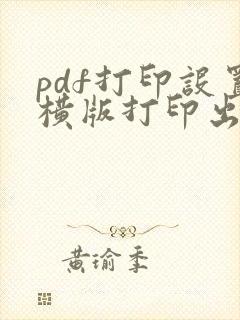 pdf打印設置
橫版打印出
黄瑜季